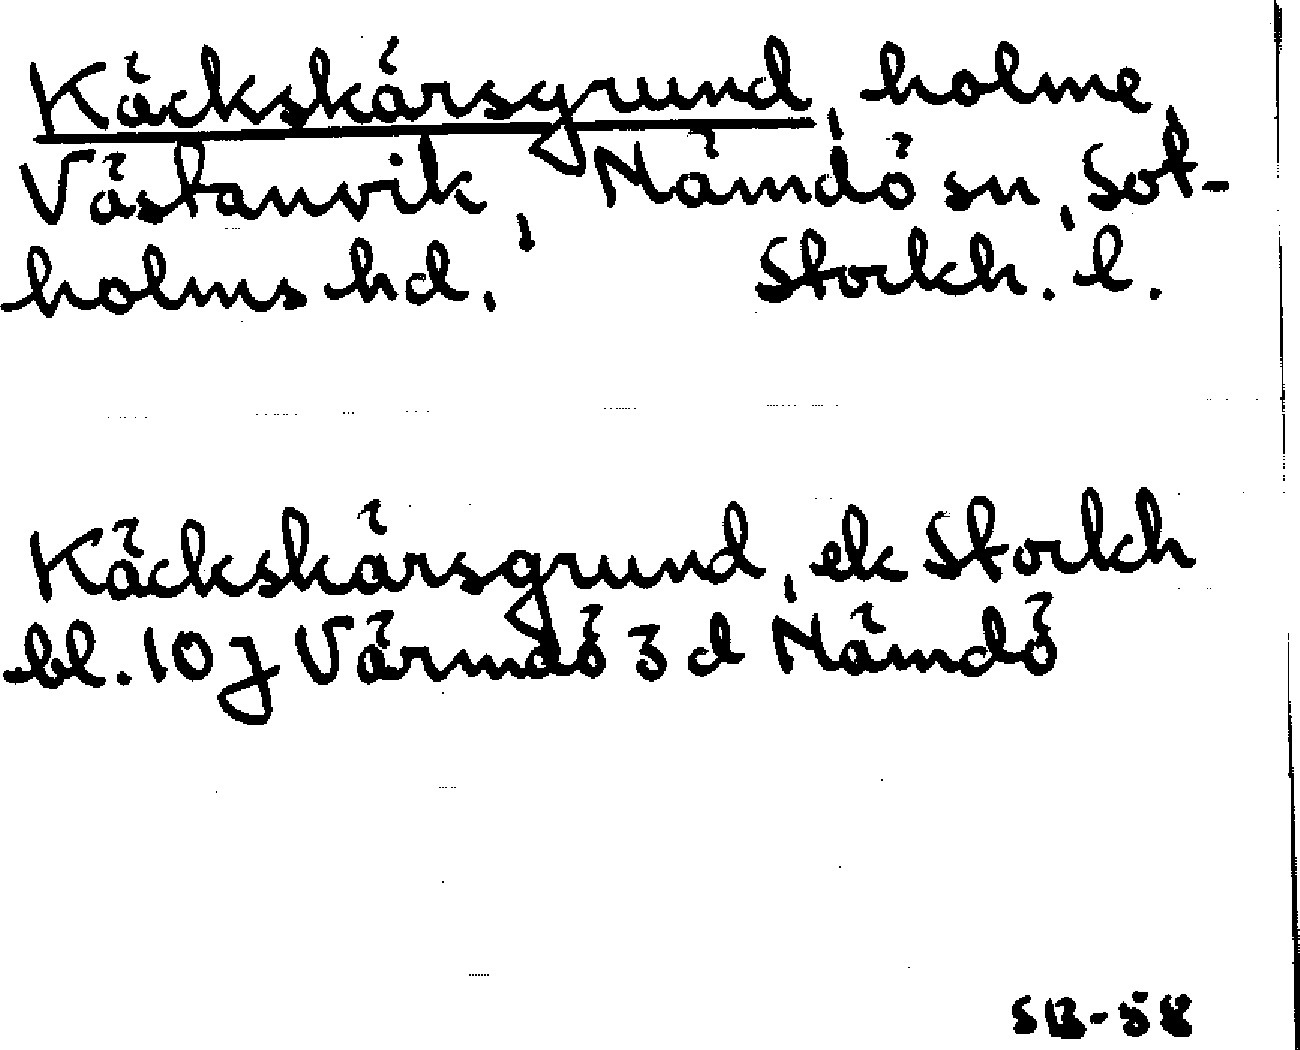 Käckskärsgrund, holme,
Västanvik, Nämdö sn, Sot-
holms hd. Stockh. l.
Käckskärsgrund, ek Stockh
bl. 10 j Värmdö 3 d Nämdö
SB-58